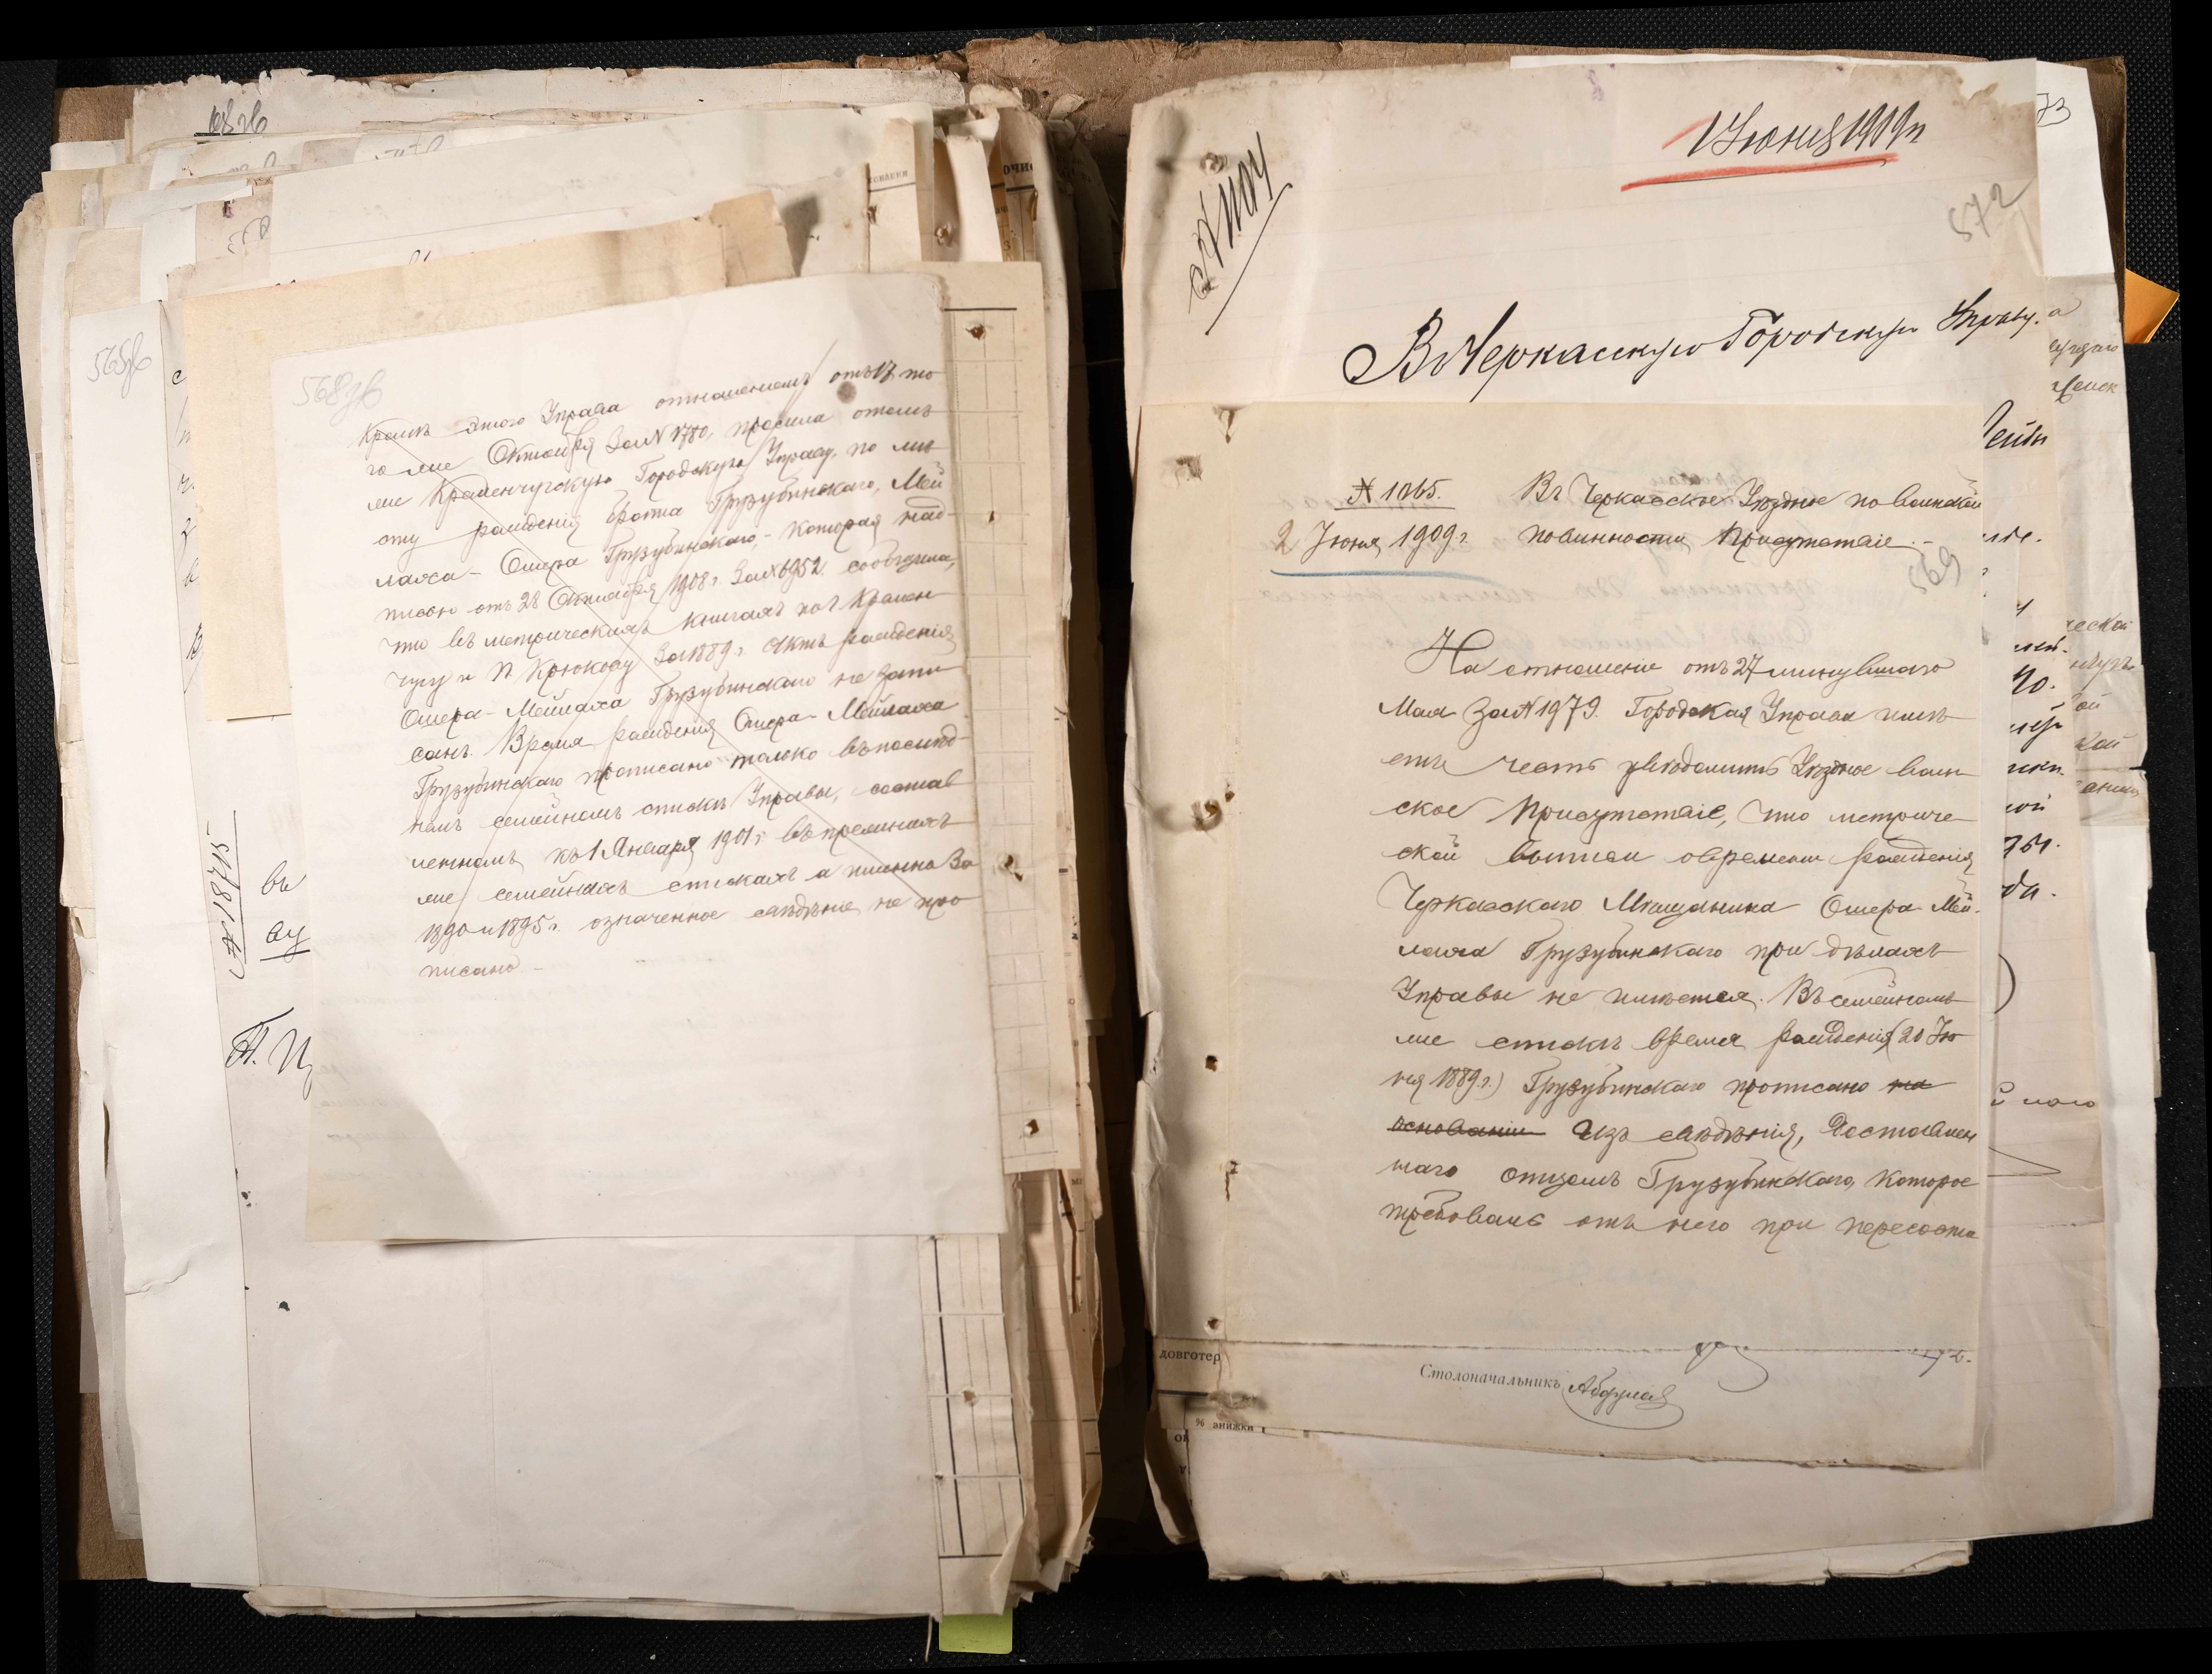 568об
Кромѣ этого Управа отношеніемъ отъ 17 то
го же Октября за № 1780, просила отомъ
же Кременчугскую Городскую Управу, по мѣ
сту рожденія брата Грузубинскаго, Мей
лаха-Ошера Грузубинскаго, - которая над-
писью отъ 28 Октября 1908 г. за № 6952 сообщила,
что въ метрическихъ книгахъ по г. Кремен
чугу и п. Крюкову за 1889 г. актъ рожденія
Ошера-Мейлаха Грузубинскаго не запи
санъ. Время рожденія Ошера-Мейлаха
Грузубинскаго прописано только въ послѣд-
немъ семейномъ спискѣ Управы, состав
ленномъ къ 1 Января 1901 г. въ прежнихъ
же семейныхъ спискахъ а именно за
1890 и 1895 г. означенное свѣдѣніе не про
писано -
565об
№ 18715
въ
1 Іюня 1909 г.
572
73
Въ Черкасскую Городскую Управу.
№ 1065.
2 Іюня 1909 г.
Въ Черкасское Уѣздное по воинской
повинности Присутствіе. -
569
На отношеніе отъ 27 минувшаго
Мая за № 1979. Городская Управа имѣ
етъ честь увѣдомить Уѣздное воин
ское Присутствіе, что метриче
ской выписи о времени рожденія
Черкасскаго Мѣщанина Ошера Мей-
лаха Грузубинскаго при дѣлахъ
Управы не имѣется. Въ семейномъ
же спискѣ время рожденія (20 Ію
ня 1889 г.) Грузубинскаго прописано на
основаніи изъ свѣдѣнія, доставлен
наго отцомъ Грузубинскаго, которое
требовано отъ него при пересоста
довготер
Столоначальникъ
% знижки